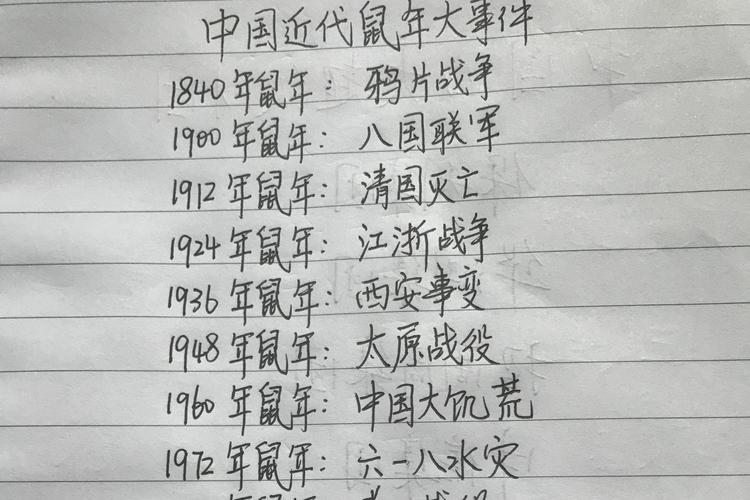 中国近代鼠年大事件
1840年鼠年：鸦片战争
1900年鼠年：八国联军
1912年鼠年：清国灭亡
1924年鼠年：江浙战争
1936年鼠年：西安事变
1948年鼠年：太原战役
1960年鼠年：中国大饥荒
1972年鼠年：六一八水灾